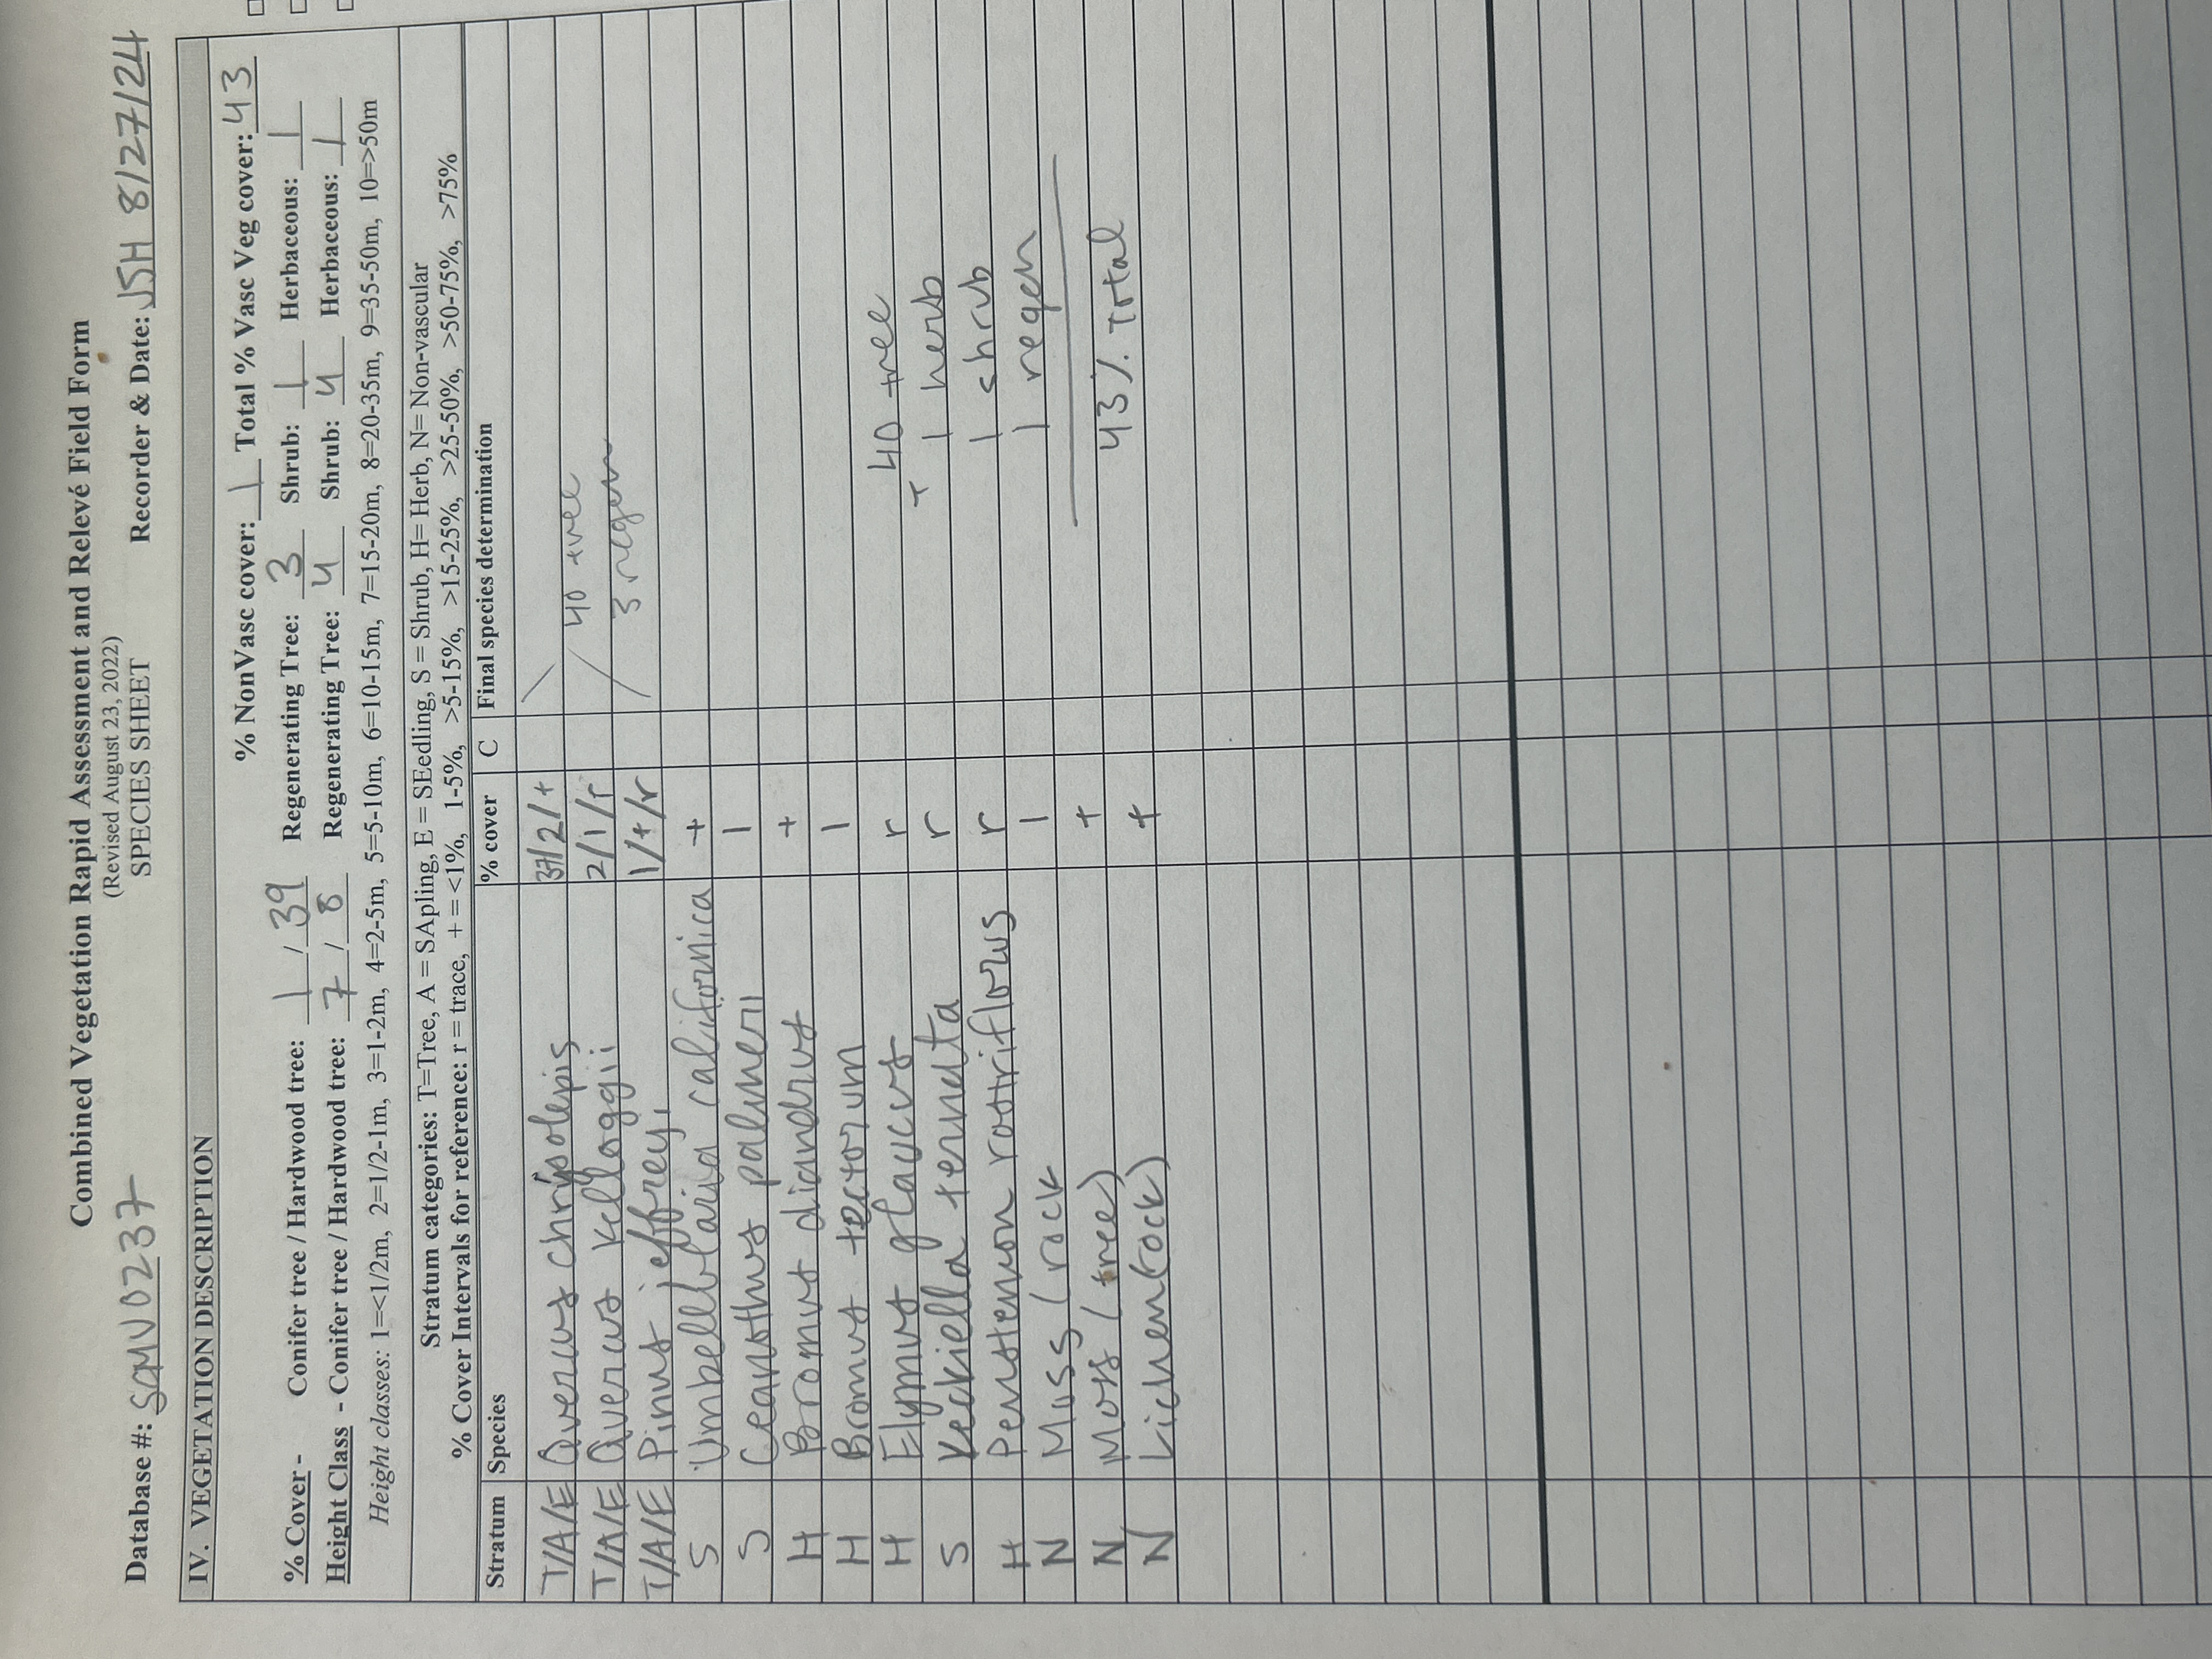 Combined Vegetation Rapid Assessment and Relevé Field Form
(Revised August 23, 2022)
SPECIES SHEET
Database #: SQMV0237 Recorder & Date: JSH 8/27/24
IV. VEGETATION DESCRIPTION
% NonVasc cover: 1 Total % Vasc Veg cover: 43
% Cover - Conifer tree / Hardwood tree: 1 / 39 Regenerating Tree: 3 Shrub: 1 Herbaceous: 1
Height Class - Conifer tree / Hardwood tree: 7 / 8 Regenerating Tree: 4 Shrub: 4 Herbaceous: 1
Height classes: 1=<1/2m, 2=1/2-1m, 3=1-2m, 4=2-5m, 5=5-10m, 6=10-15m, 7=15-20m, 8=20-35m, 9=35-50m, 10=>50m
Stratum categories: T=Tree, A = SApling, E = SEedling, S = Shrub, H= Herb, N= Non-vascular
% Cover Intervals for reference: r = trace, + = <1%, 1-5%, >5-15%, >15-25%, >25-50%, >50-75%, >75%
Stratum Species % cover C Final species determination
T/A/E Quercus chrysolepis 37/2/+
T/A/E Quercus Kelloggii 2/1/r 40 tree
T/A/E Pinus jeffreyi 1/+/r 3 regen
S Umbellularia californica +
S Ceanothus palmeri 1
H Bromus diandrus +
H Bromus tectorum 1
H Elymus glaucus r 40 tree
S Keckiella ternata r + 1 herb
H Penstemon rostriflorus r 1 shrub
N Moss (rock 1 1 regen
N Moss (tree) + 43% Total
N Lichen (rock) +